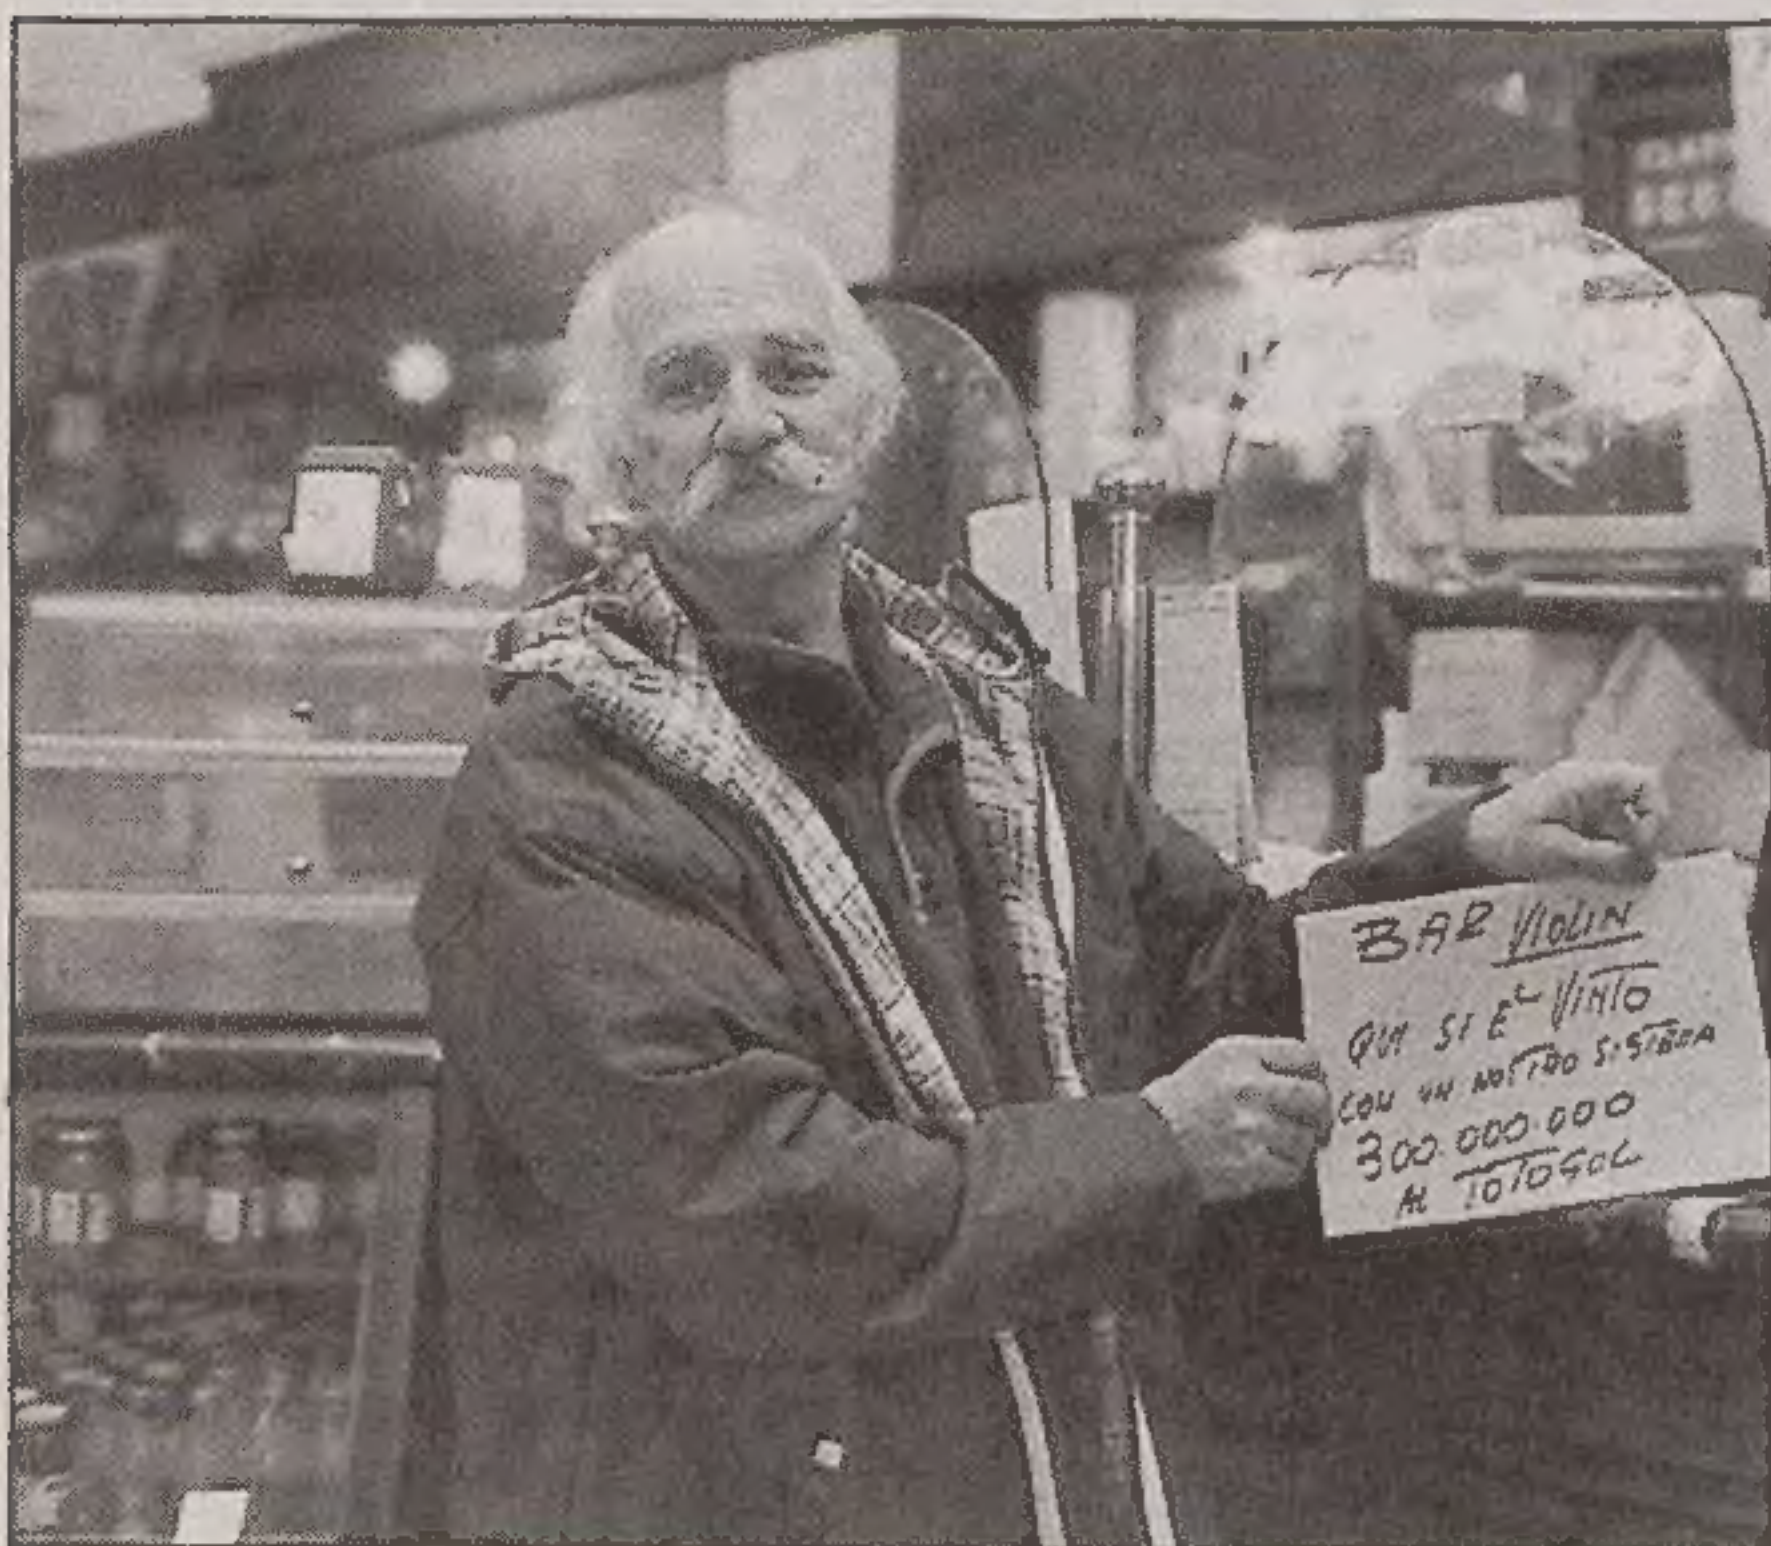 BAR VIOLIN
QUI SI E' VINTO
CON UN NOSTRO SISTEMA
300.000.000
AL TOTOGOL